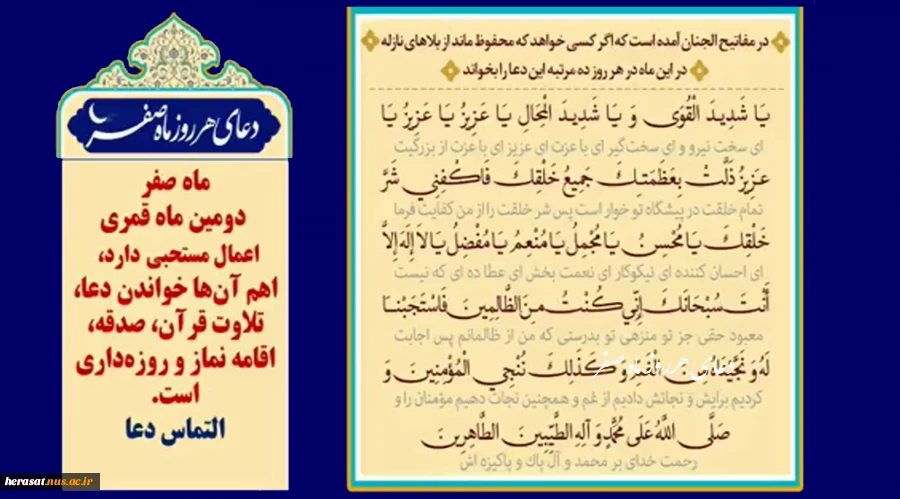 در مفاتیح الجنان آمده است که اگر کسی خواهد که محفوظ ماند از بلاهای نازله
در این ماه در هر روز ده مرتبه این دعا را بخواند
یَا شَدِیدَ الْقُوَى وَ یَا شَدِیدَ الْمِحَالِ یَا عَزِیزُ یَا عَزِیزُ یَا
ای سخت نیرو و ای سخت‌گیر ای با عزت ای عزیز ای با عزت از بزرگیت
عَزِیزُ ذَلَّتْ بِعَظَمَتِكَ جَمِیعُ خَلْقِكَ فَاكْفِنِي شَرَّ
تمام خلقت در پیشگاه تو خوار است پس شر خلقت را از من کفایت فرما
خَلْقِكَ یَا مُحْسِنُ یَا مُجْمِلُ یَا مُنْعِمُ یَا مُفْضِلُ یَا لاَ إِلَهَ إِلاَّ
ای احسان کننده ای نیکوکار ای نعمت بخش ای عطا ده ای که نیست
أَنْتَ سُبْحَانَكَ إِنِّي كُنْتُ مِنَ الظَّالِمِینَ فَاسْتَجَبْنَا
معبود حقی جز تو منزهی تو بدرستی که من از ظالمانم پس اجابت
لَهُ وَ نَجَّیْنَاهُ مِنَ الْغَمِّ وَ كَذَلِكَ نُنْجِي الْمُؤْمِنِینَ وَ
کردیم برایش و نجاتش دادیم از غم و همچنین نجات دهیم مؤمنان را و
صَلَّى اللَّهُ عَلَى مُحَمَّدٍ وَ آلِهِ الطَّیِّبِینَ الطَّاهِرِینَ
رحمت خدای بر محمد و آل پاك و پاکیزه اش
دعای هر روز ماه صفر
دعای هر روز ماه صفر
ماه صفر
دومین ماه قمری
اعمال مستحبی دارد،
اهم آن‌ها خواندن دعا،
تلاوت قرآن، صدقه،
اقامه نماز و روزه‌داری
است.
التماس دعا
herasat.nus.ac.ir